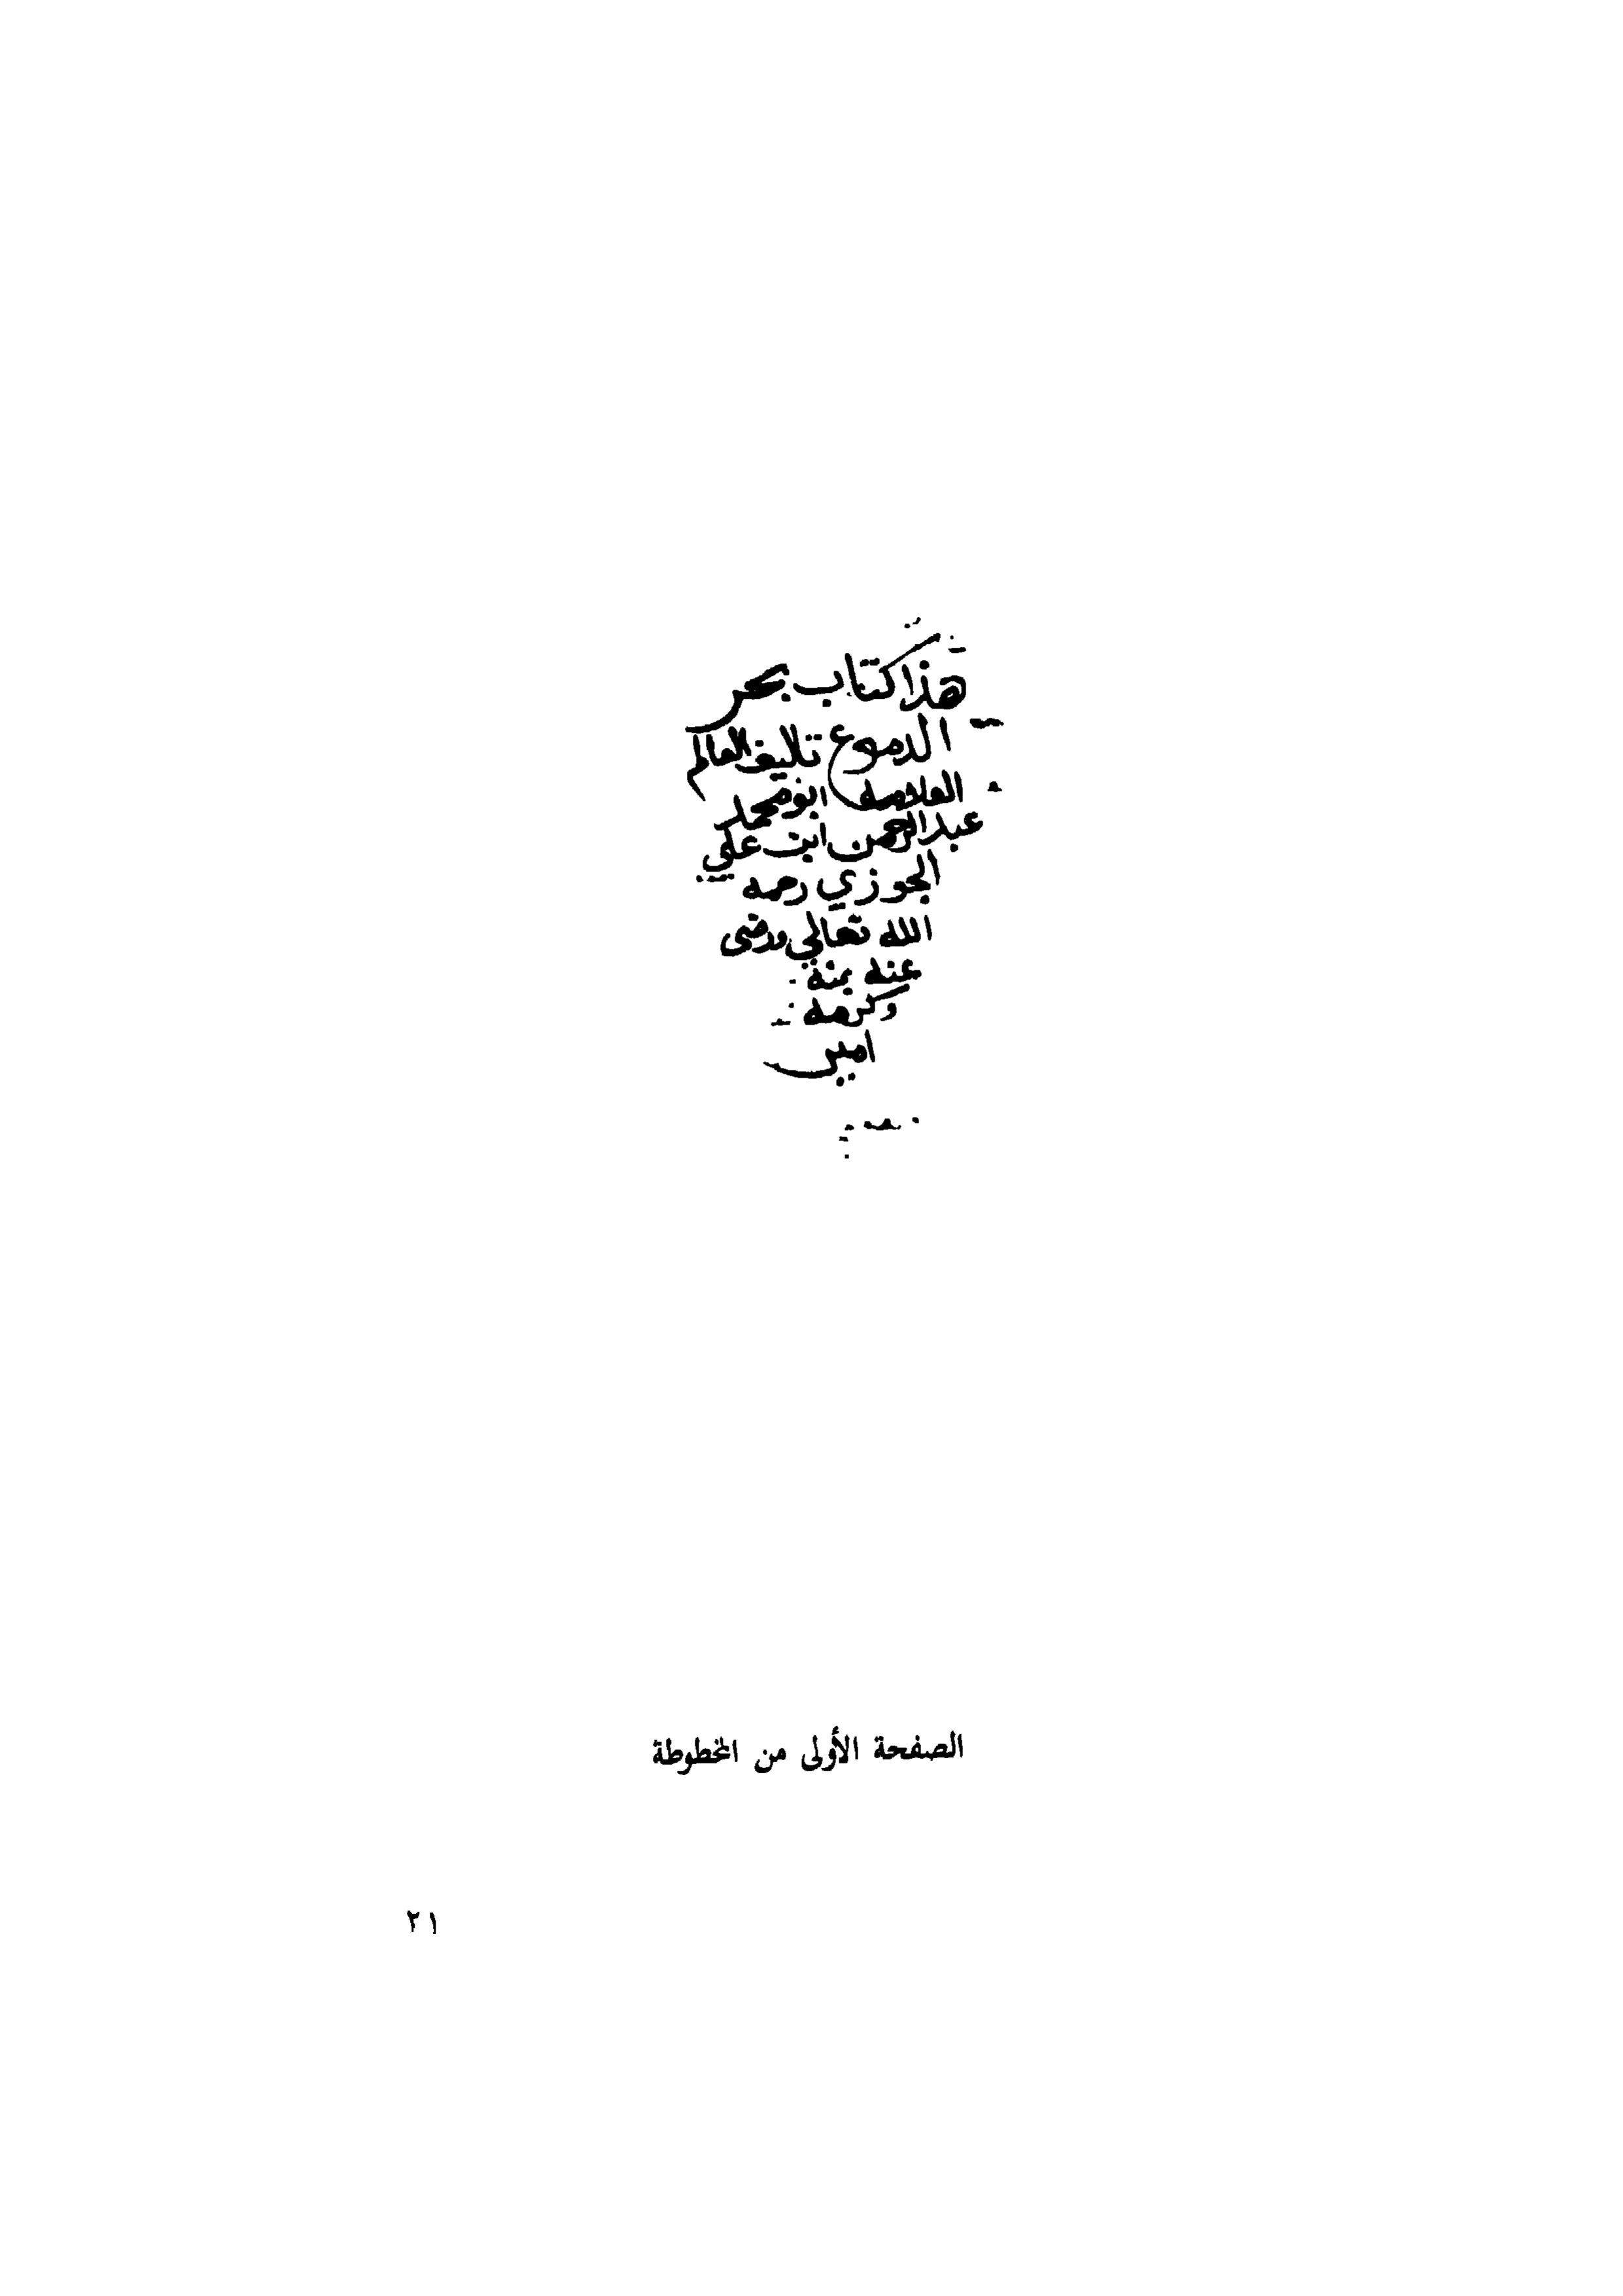 هذا كتاب بحر
الدموع تاليف العالم
العلامه ابو محمد
عبد الرحمن ابن علي
الجوزي رحمه
الله تعالي ورضى
عنه بمنه
وكرمه
امين
الصفحة الأولى من المخطوطة
٢١